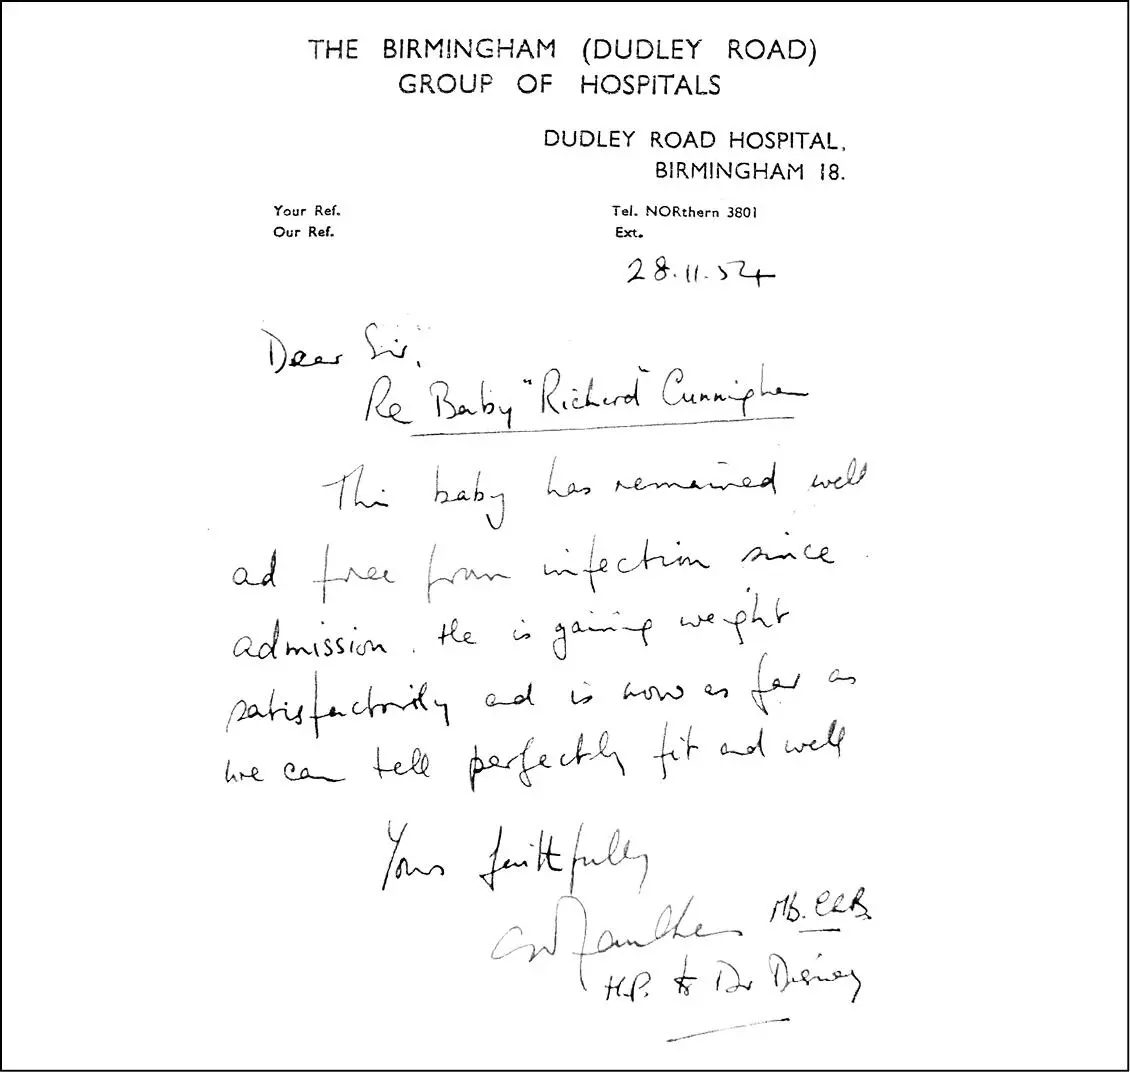 THE BIRMINGHAM (DUDLEY ROAD)
GROUP OF HOSPITALS
DUDLEY ROAD HOSPITAL,
BIRMINGHAM 18.
Your Ref. Tel. NORthern 3801
Our Ref. Ext.
28.11.54
Dear Sir,
Re Baby "Richard" Cunnigham
This baby has remained well
and free from infection since
admission. He is gaining weight
satisfactorily and is now as far as
we can tell perfectly fit and well
Yours faithfully
Mb. ChB.
H.P. to Dr Disney